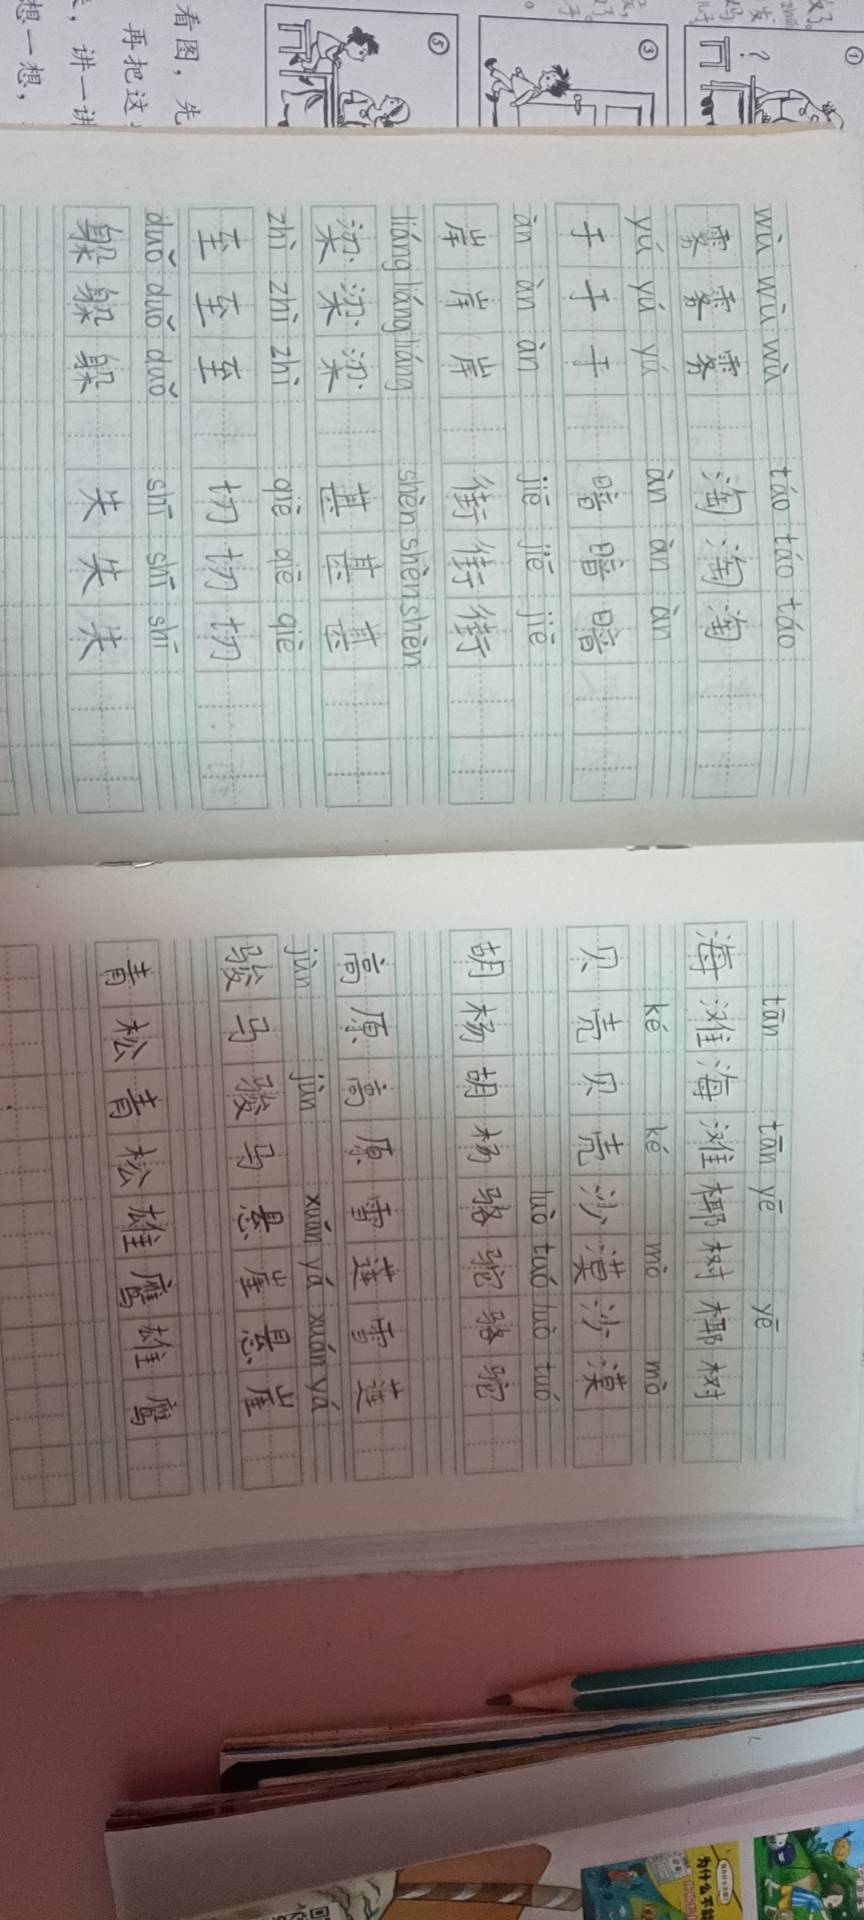 ①
?
③
⑤
看图，先
再把这
，讲一讲
想一想，
wù wù wù táo táo táo
雾 雾 雾 淘 淘 淘
yú yú yú àn àn àn
于 于 于 暗 暗 暗
àn àn àn jiē jiē jiē
岸 岸 岸 街 街 街
liáng liáng liáng shèn shèn shèn
梁 梁 梁 甚 甚 甚
zhì zhì zhì qiè qiè qiè
至 至 至 切 切 切
duǒ duǒ duǒ shī shī shī
躲 躲 躲 失 失 失
tān tān yē yē
海 滩 海 滩 椰 树 椰 树
ké ké mò mò
贝 壳 贝 壳 沙 漠 沙 漠
luò tuó luò tuó
胡 杨 胡 杨 骆 驼 骆 驼
高 原 高 原 雪 莲 雪 莲
jùn jùn xuán yá xuán yá
骏 马 骏 马 悬 崖 悬 崖
青 松 青 松 雄 鹰 雄 鹰
为什么不能